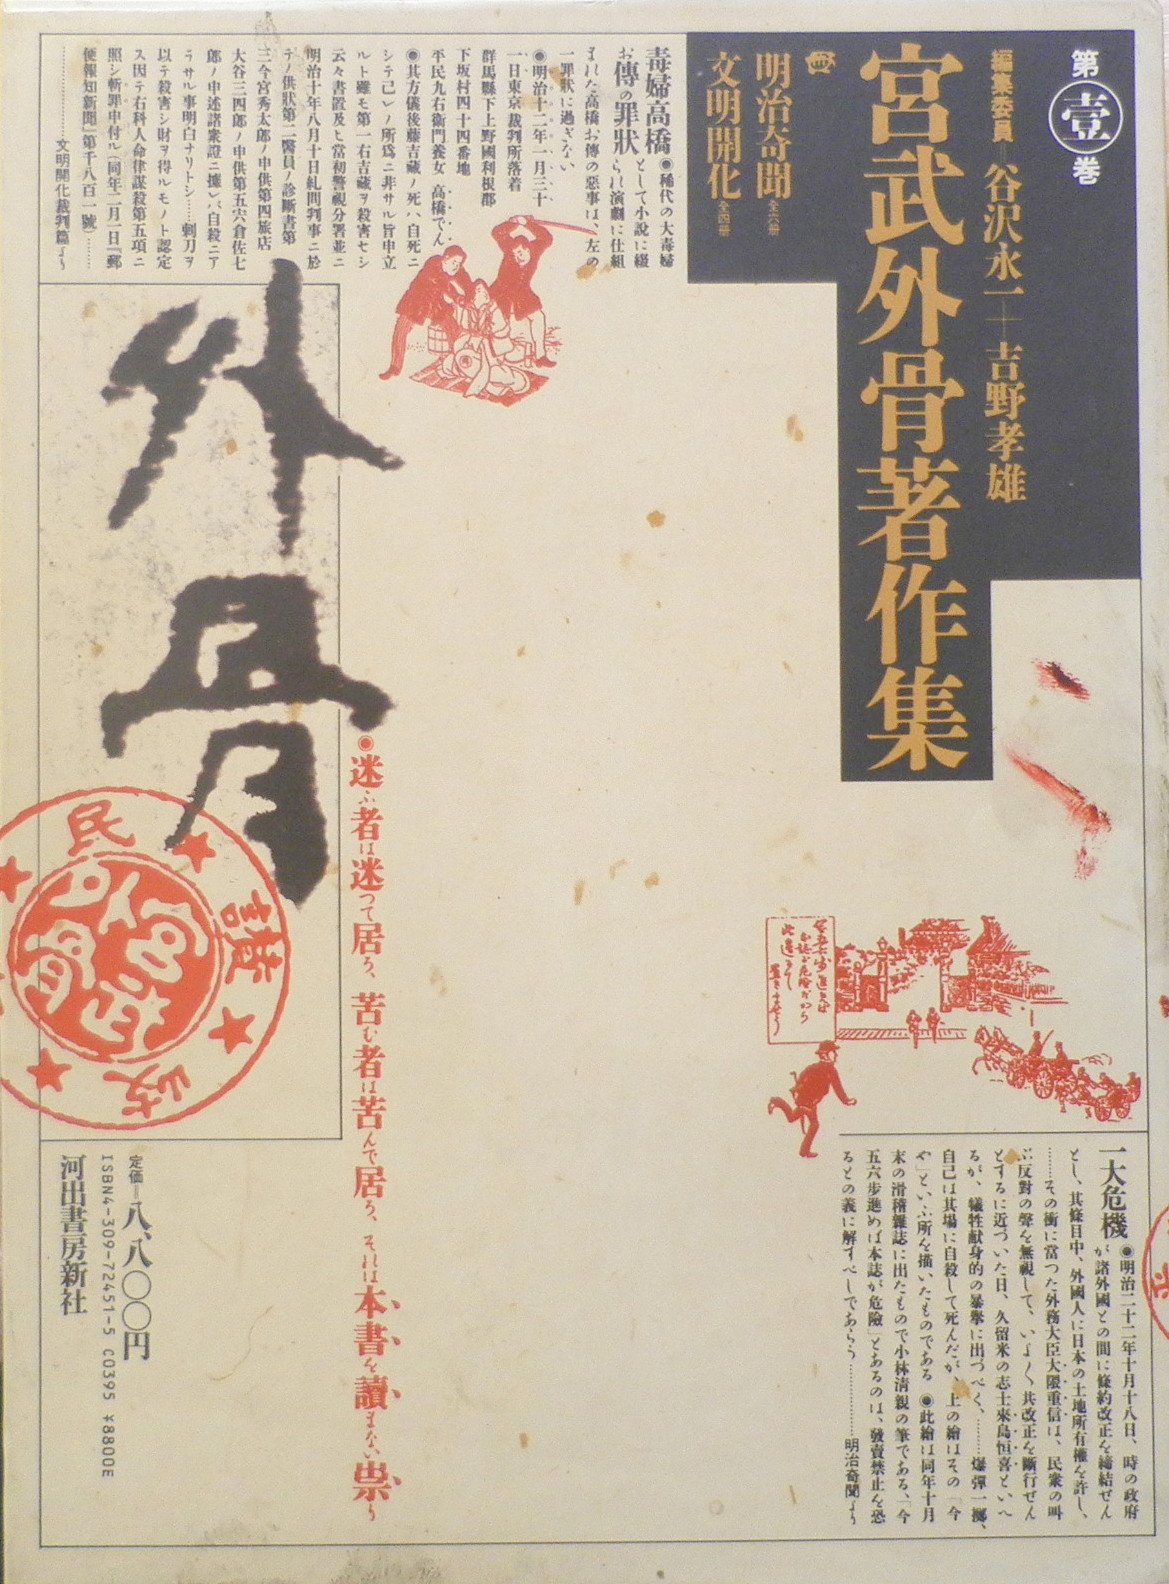 第壹巻
編集委員＝谷沢永一＋吉野孝雄
宮武外骨著作集
明治奇聞 全六冊
文明開化 全四冊
毒婦高橋
お傳の罪狀
●稀代の大毒婦
として小説に綴
られ演劇に仕組
まれた高橋お傳の惡事は、左の
一罪狀に過ぎない
●明治十二年一月三十
一日東京裁判所落着
群馬縣下上野國利根郡
下坂村四十四番地
平民九右衛門養女 高橋でん
●其方儀後藤吉藏ノ死ハ自死ニ
シテ己レノ所爲ニ非サル旨申立
ルト雖モ第一右吉藏ヲ殺害セシ
云々書置及ヒ當初警視分署並ニ
明治十年八月十日糺問判事ニ於
テノ供狀第二醫員ノ診斷書第
三今宮秀太郎ノ申供第四旅店
大谷三四郎ノ申供第五宍倉佐七
郎ノ申述諸衆證ニ據レバ自殺ニア
ラサル事明白ナリトシ……刺刀ヲ
以テ殺害シ財ヲ得ルモノト認定
ス因テ右科人命律謀殺第五項ニ
照シ斬罪申付ル（同年二月一日『郵
便報知新聞』第千八百一號）……
……文明開化裁判篇より
外骨
◉迷ふ者は迷つて居ろ、苦む者は苦んで居ろ、それは本書を讀まない祟り
民
讀
一大危機
●明治二十二年十月十八日、時の政府
が諸外國との間に條約改正を締結せん
とし、其條目中、外國人に日本の土地所有權を許し、
……その衝に當つた外務大臣大隈重信は、民衆の叫
ぶ反對の聲を無視して、いよ〱其改正を斷行せん
とするに近づいた日、久留米の志士來島恒喜といへ
るが、犧牲献身的の暴擧に出づべく、……爆彈一擲、
自己は其場に自殺して死んだが、上の繪はその「今
や」といふ所を描いたものである ●此繪は同年十月
末の滑稽雜誌に出たもので小林淸親の筆である、「今
五六歩進めば本誌が危險」とあるのは、發賣禁止を恐
るとの義に解すべしであらう……明治奇聞より
定価＝八、八〇〇円
ISBN4-309-72451-5 C0395 ¥8800E
河出書房新社